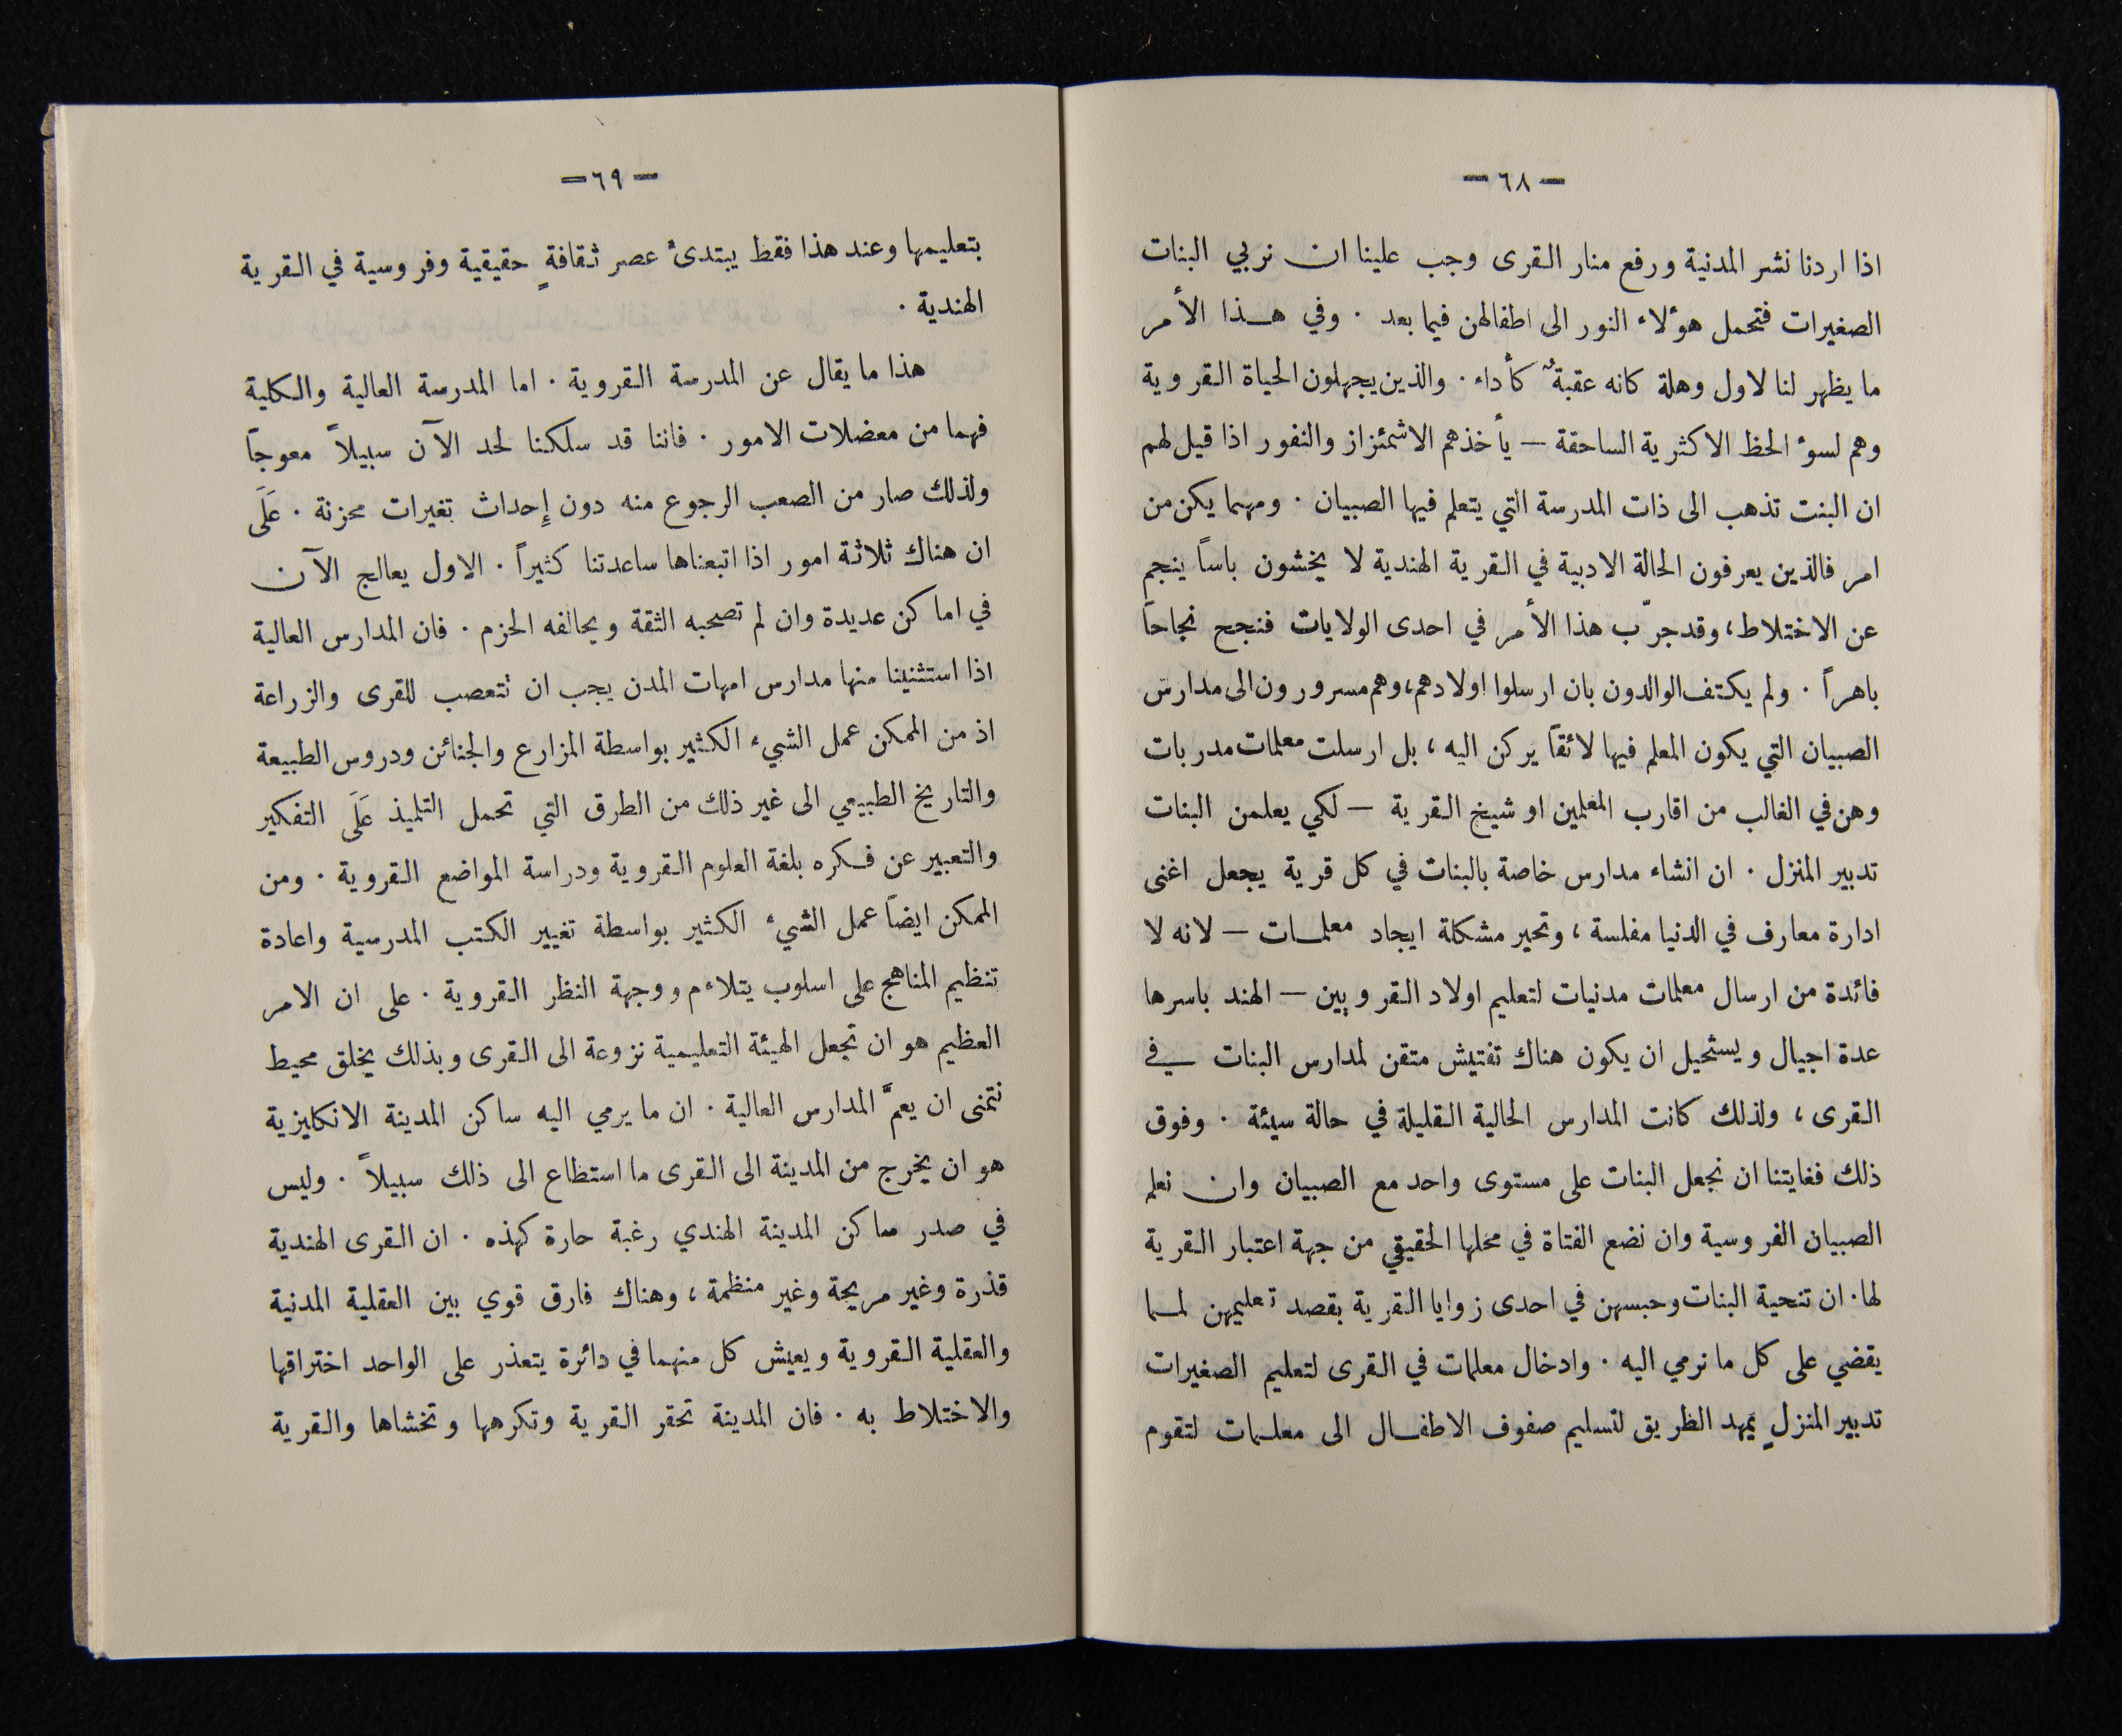 — ٦٨ —
اذا اردنا نشر المدنية ورفع منار القرى وجب علينا ان نربي البنات
الصغيرات فتحمل هوٴلاء النور الى اطفالهن فيما بعد . وفي هذا الأمر
ما يظهر لنا لاول وهلة كانه عقبةٌ كأداء . والذين يجهلون الحياة القروية
وهم لسوٴ الحظ الاكثرية الساحقة — يأخذهم الاشمئزاز والنفور اذا قيل لهم
ان البنت تذهب الى ذات المدرسة التي يتعلم فيها الصبيان . ومهما يكن من
امر فالذين يعرفون الحالة الادبية في القرية الهندية لا يخشون باساً ينجم
عن الاختلاط، وقد جرّب هذا الأمر في احدى الولايات فنجح نجاحاً
باهراً . ولم يكتف الوالدون بان ارسلوا اولادهم، وهم مسرورون الى مدارس
الصبيان التي يكون المعلم فيها لائقاً يركن اليه ، بل ارسلت معلمات مدربات
وهن في الغالب من اقارب المعلمين او شيخ القرية — لكي يعلمن البنات
تدبير المنزل . ان انشاء مدارس خاصة بالبنات في كل قرية يجعل اغنى
ادارة معارف في الدنيا مفلسة ، وتحير مشكلة ايجاد معلمات — لانه لا
فائدة من ارسال معلمات مدنيات لتعليم اولاد القرويين — الهند باسرها
عدة اجيال ويستحيل ان يكون هناك تفتيش متقن لمدارس البنات في
القرى ، ولذلك كانت المدارس الحالية القليلة في حالة سيئة . وفوق
ذلك فغايتنا ان نجعل البنات على مستوى واحد مع الصبيان وان نعلم
الصبيان الفروسية وان نضع الفتاة في محلها الحقيقي من جهة اعتبار القرية
لها . ان تنحية البنات وحبسهن في احدى زوايا القرية بقصد تعليمهن لمما
يقضي على كل ما نرمي اليه . وادخال معلمات في القرى لتعليم الصغيرات
تدبير المنزلِ يمهد الطريق لتسليم صفوف الاطفال الى معلمات لتقوم
— ٦٩ —
بتعليمها وعند هذا فقط يبتدئ عصر ثقافةٍ حقيقية وفروسية في القرية
الهندية .
هذا ما يقال عن المدرسة القروية . اما المدرسة العالية والكلية
فهما من معضلات الامور . فاننا قد سلكنا لحد الآن سبيلاً معوجاً
ولذلك صار من الصعب الرجوع منه دون إحداث تغيرات محزنة . عَلَى
ان هناك ثلاثة امور اذا اتبعناها ساعدتنا كثيراً . الاول يعالج الآن
في اماكن عديدة وان لم تصحبه الثقة ويحالفه الحزم . فان المدارس العالية
اذا استثنينا منها مدارس امهات المدن يجب ان تتعصب للقرى والزراعة
اذ من الممكن عمل الشيء الكثير بواسطة المزارع والجنائن ودروس الطبيعة
والتاريخ الطبيعي الى غير ذلك من الطرق التي تحمل التلميذ عَلَى التفكير
والتعبير عن فكره بلغة العلوم القروية ودراسة المواضع القروية . ومن
الممكن ايضاً عمل الشيء الكثير بواسطة تغيير الكتب المدرسية واعادة
تنظيم المناهج على اسلوب يتلاءم ووجهة النظر القروية . على ان الامر
العظيم هو ان تجعل الهيئة التعليمية نزوعة الى القرى وبذلك يخلق محيط
نتمنى ان يعمَّ المدارس العالية . ان ما يرمي اليه ساكن المدينة الانكليزية
هو ان يخرج من المدينة الى القرى ما استطاع الى ذلك سبيلاً . وليس
في صدر ساكن المدينة الهندي رغبة حارة كهذه . ان القرى الهندية
قذرة وغير مريحة وغير منظمة ، وهناك فارق قوي بين العقلية المدنية
والعقلية القروية ويعيش كل منهما في دائرة يتعذر على الواحد اختراقها
والاختلاط به . فان المدينة تحقر القرية وتكرهها وتخشاها والقرية